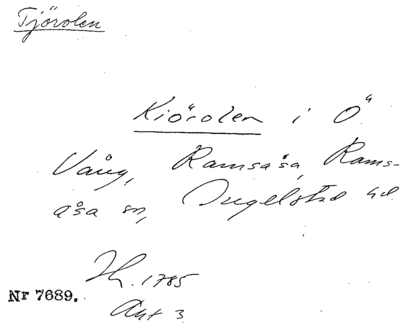 Tjörolen
Kiörolen i Ö
Vång, Ramsåsa, Rams-
åsa sn, Ingelstad hd
Sk. 1785
Nr 7689.
Akt 3